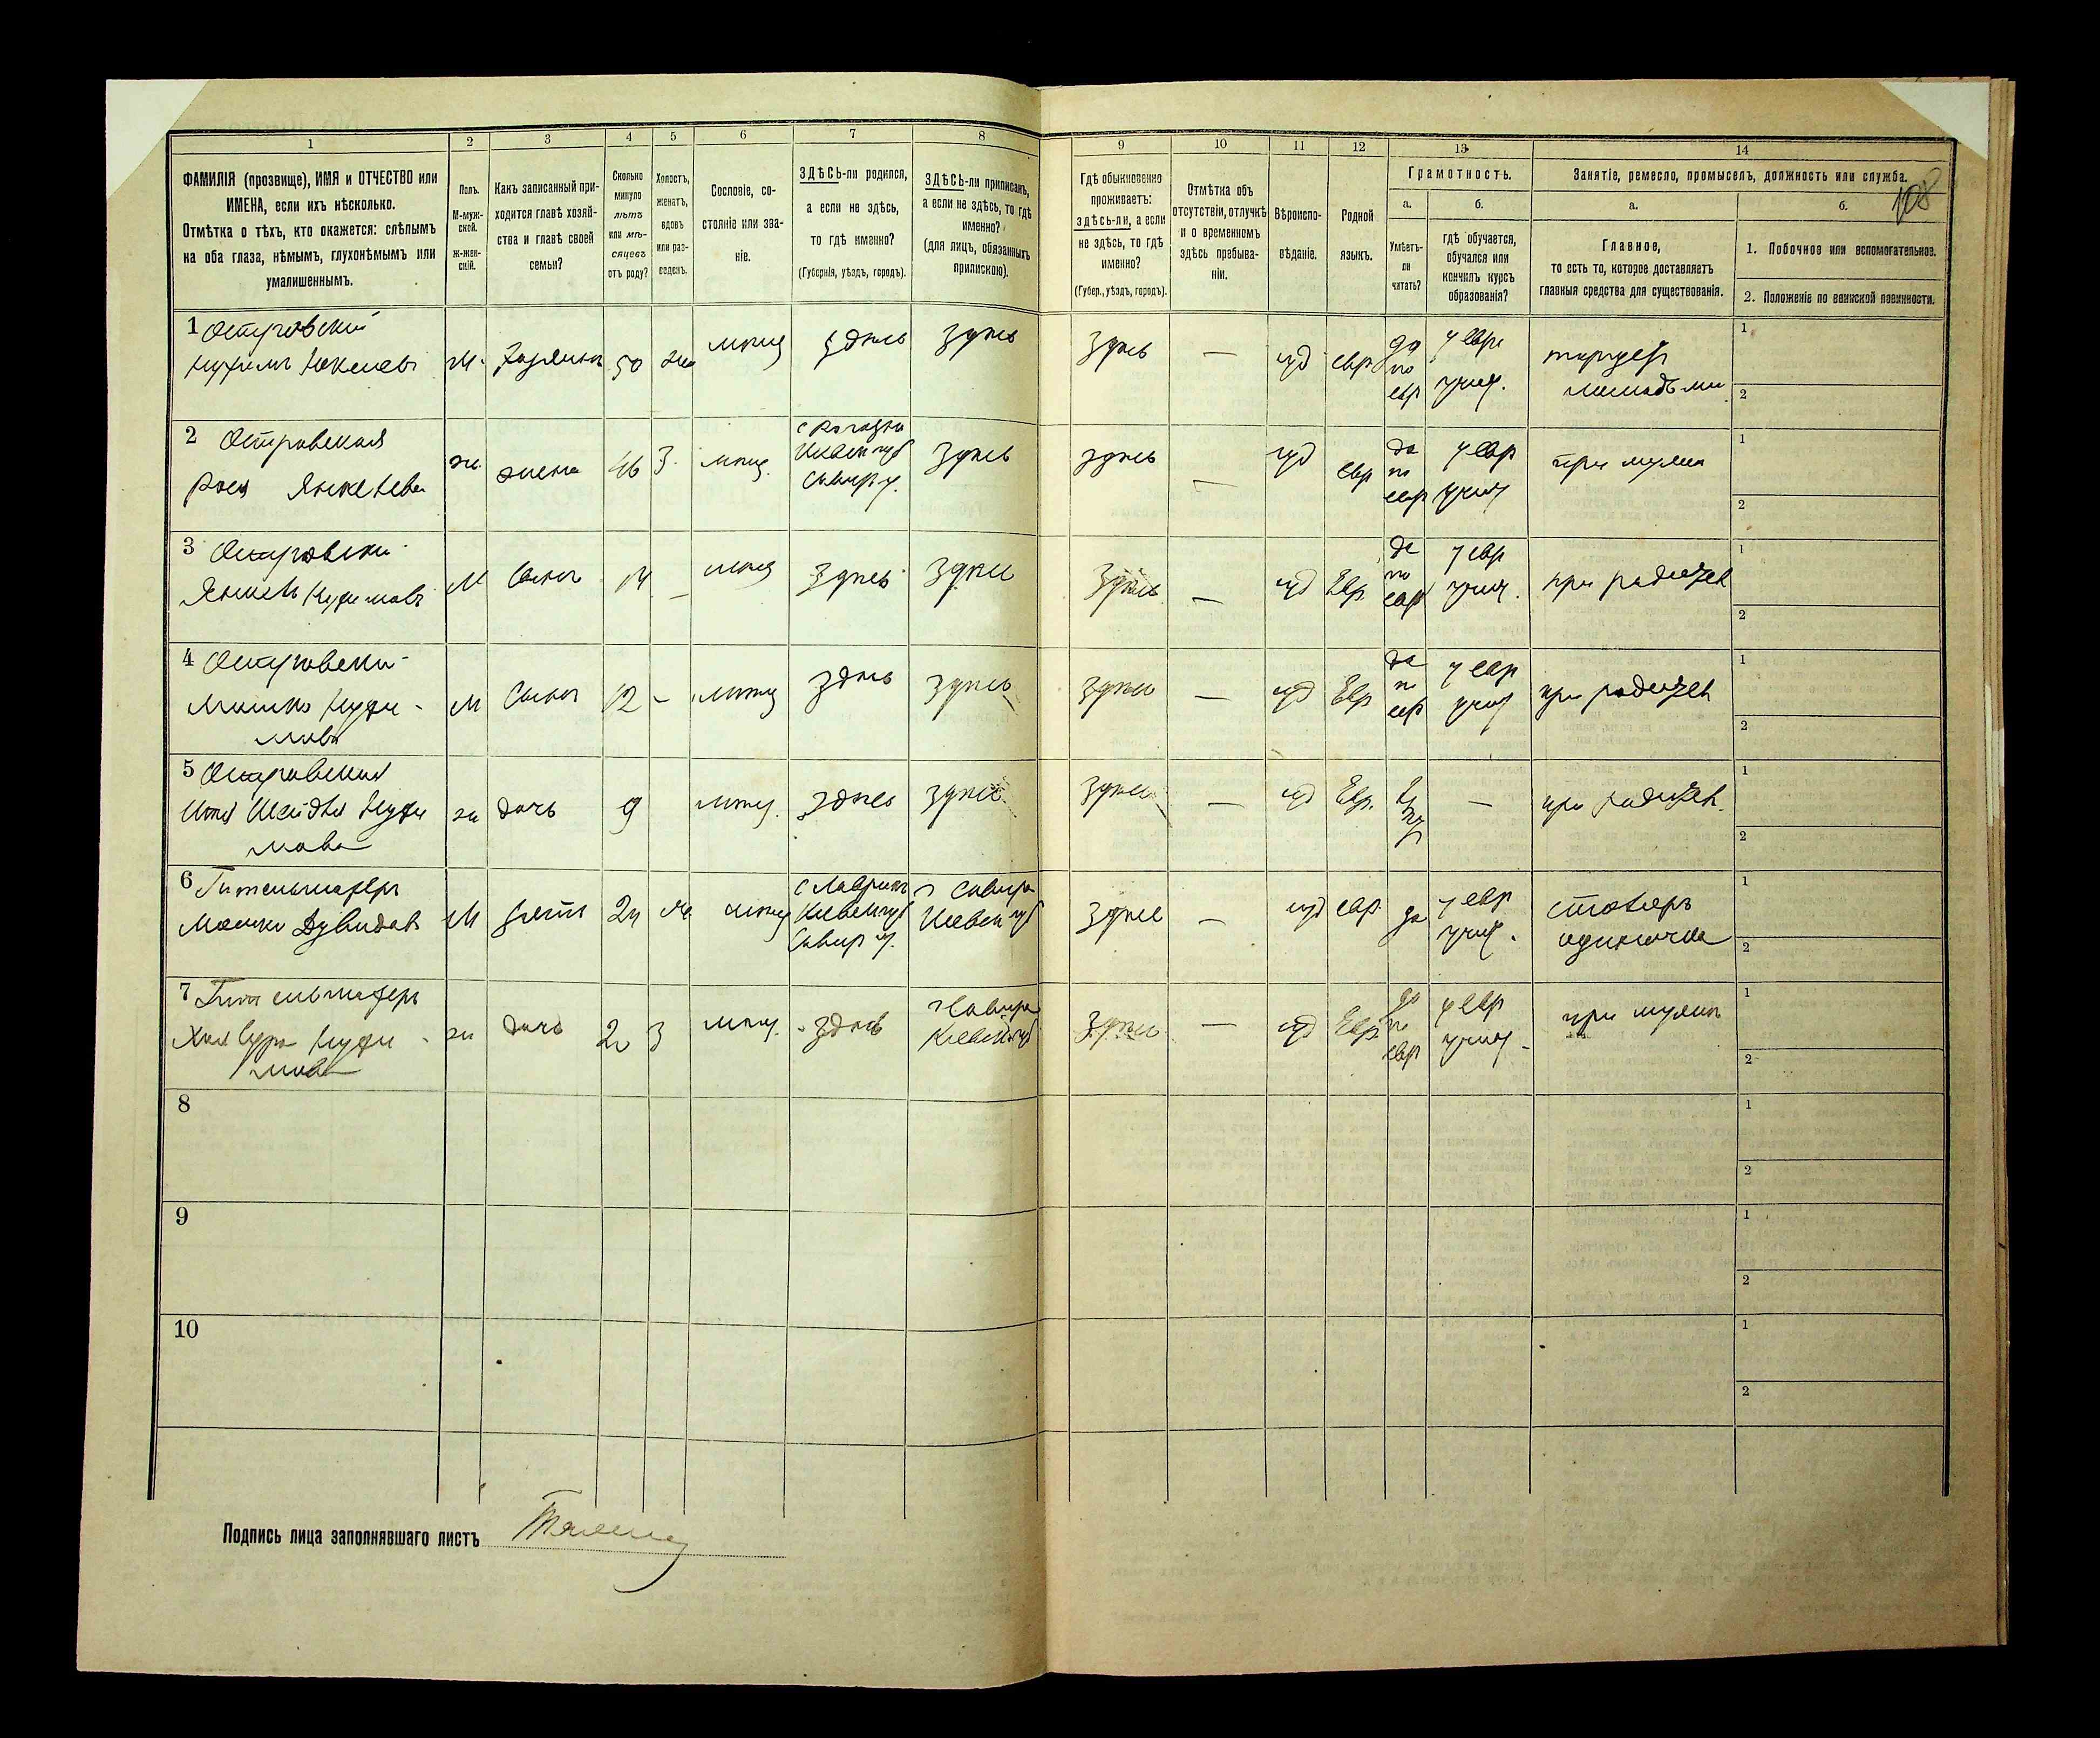 108
1 2 3 4 5 6 7 8 9 10 11 12 13 14
ФАМИЛІЯ (прозвище), ИМЯ и ОТЧЕСТВО или
ИМЕНА, если ихъ нѣсколько.
Отмѣтка о тѣхъ, кто окажется: слѣпымъ
на оба глаза, нѣмымъ, глухонѣмымъ или
умалишеннымъ.
Полъ.
М-муж-
ской.
Ж-жен-
скій.
Какъ записанный при-
ходится главѣ хозяй-
ства и главѣ своей
семьи?
Сколько
минуло
лѣтъ
или мѣ-
сяцевъ
отъ роду?
Холостъ,
женатъ,
вдовъ
или раз-
веденъ.
Сословіе, со-
стояніе или зва-
ніе.
ЗДѢСЬ-ли родился,
а если не здѣсь,
то гдѣ именно?
(Губернія, уѣздъ, городъ).
ЗДѢСЬ-ли приписанъ,
а если не здѣсь, то гдѣ
именно?
(для лицъ, обязанныхъ
припискою).
Гдѣ обыкновенно
проживаетъ:
здѣсь-ли, а если
не здѣсь, то гдѣ
именно?
(Губер., уѣздъ, городъ).
Отмѣтка объ
отсутствіи, отлучкѣ
и о временномъ
здѣсь пребыва-
ніи.
Вѣроиспо-
вѣданіе.
Родной
языкъ.
Грамотность.
а.
Умѣетъ-
ли
читать?
б.
гдѣ обучается,
обучался или
кончилъ курсъ
образованія?
Занятіе, ремесло, промыселъ, должность или служба.
а.
Главное,
то есть то, которое доставляетъ
главныя средства для существованія.
б.
1. Побочное или вспомогательное.
2. Положеніе по воинской повинности.
1 Островский
Нухимъ
М. Хозяинъ 50 же мѣщ здѣсь здѣсь
здѣсь — иуд евр да по евр у евр учит. торгуетъ лошадьми
1
2
2 Островская
Рося Янкелева
ж. жена 46 З. мѣщ.
Киевск губ
Сквир у.
здѣсь
здѣсь — иуд евр да по евр у евр учит при мужѣ
1
2
3 Островски
Янкель Нухимовъ
М Сынъ 14 — мѣщ здѣсь здѣсь
здѣсь — иуд Евр да по евр у евр учит. при родител
1
2
4 Островски
Мошко Нухи-
мовъ
М Сынъ 12 — мѣщ здѣсь здѣсь
здѣсь — иуд Евр да по евр у евр учит при родител
1
2
5 Островская
Нухи
мова
ж дочь 9 мѣщ. здѣсь здѣсь
здѣсь — иуд Евр. — при родител.
1
2
6
Мошко Дувидовъ
М зять 24 же мѣщ
Киевск губ
Сквир у.
г Сквира
Киевск губ
здѣсь — иуд евр. да у евр учит. столяръ
одиночка
1
2
7
Нухи-
мова
ж дочь 20 З мѣщ. здѣсь
г Сквира
Киевск губ
здѣсь — иуд Евр. да по евр у евр учит при мужѣ
1
2
8
1
2
9
1
2
10
1
2
Подпись лица заполнявшаго листъ